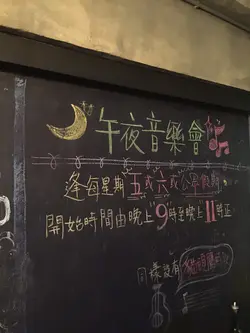 午夜音樂會
逢每星期五或六或公眾假期
開始時間由晚上9時至晚上11時正
同樣設有